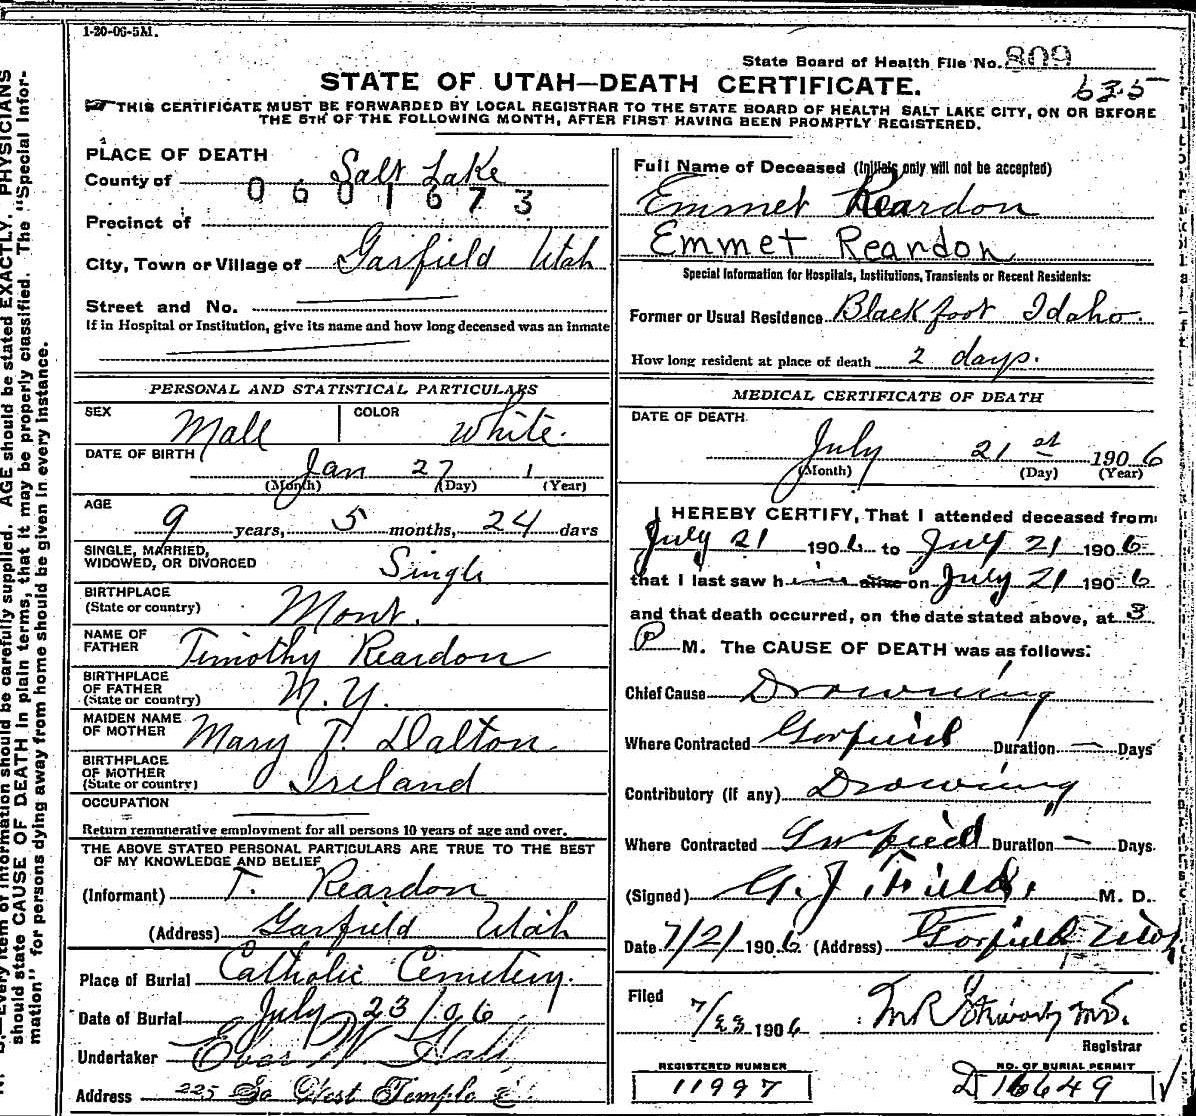 1-20-06-5M.
State Board of Health File No. 809
STATE OF UTAH—DEATH CERTIFICATE.
635
THIS CERTIFICATE MUST BE FORWARDED BY LOCAL REGISTRAR TO THE STATE BOARD OF HEALTH SALT LAKE CITY, ON OR BEFORE
THE 5TH OF THE FOLLOWING MONTH, AFTER FIRST HAVING BEEN PROMPTLY REGISTERED.
PLACE OF DEATH
County of Salt Lake
0601673
Precinct of
City, Town or Village of Garfield Utah
Street and No.
If in Hospital or Institution, give its name and how long deceased was an inmate
Full Name of Deceased (Initials only will not be accepted)
Emmet Reardon
Emmet Reardon
Special Information for Hospitals, Institutions, Transients or Recent Residents:
Former or Usual Residence Blackfoot Idaho.
How long resident at place of death 2 days.
PERSONAL AND STATISTICAL PARTICULARS
SEX Male COLOR White.
DATE OF BIRTH Jan 27 1
(Month) (Day) (Year)
AGE 9 years, 5 months, 24 days
SINGLE, MARRIED,
WIDOWED, OR DIVORCED Single
BIRTHPLACE
(State or country) Mont.
NAME OF
FATHER Timothy Reardon
BIRTHPLACE
OF FATHER
(State or country) N.Y.
MAIDEN NAME
OF MOTHER Mary T. Dalton
BIRTHPLACE
OF MOTHER
(State or country) Ireland
OCCUPATION
Return remunerative employment for all persons 10 years of age and over.
THE ABOVE STATED PERSONAL PARTICULARS ARE TRUE TO THE BEST
OF MY KNOWLEDGE AND BELIEF
(Informant) T. Reardon
(Address) Garfield Utah
Place of Burial Catholic Cemetery.
Date of Burial July 23/06
Undertaker W. Hall
Address 225 So West Temple
MEDICAL CERTIFICATE OF DEATH
DATE OF DEATH
July 21 st 1906
(Month) (Day) (Year)
I HEREBY CERTIFY, That I attended deceased from
July 21 1906 to July 21 1906
that I last saw him alive on July 21 1906
and that death occurred, on the date stated above, at 3
P M. The CAUSE OF DEATH was as follows:
Chief Cause Drowning
Where Contracted Garfield Duration — Days
Contributory (if any) Drowning
Where Contracted Garfield Duration — Days.
(Signed) G. J. Field, M. D.
Date 7/21/ 1906 (Address) Garfield Utah
Filed 7/23 1906 M.D.
Registrar
REGISTERED NUMBER
11997
NO. OF BURIAL PERMIT
D 16649
N. B.—Every item of information should be carefully supplied. AGE should be stated EXACTLY. PHYSICIANS
should state CAUSE OF DEATH in plain terms, that it may be properly classified. The "Special Infor-
mation" for persons dying away from home should be given in every instance.